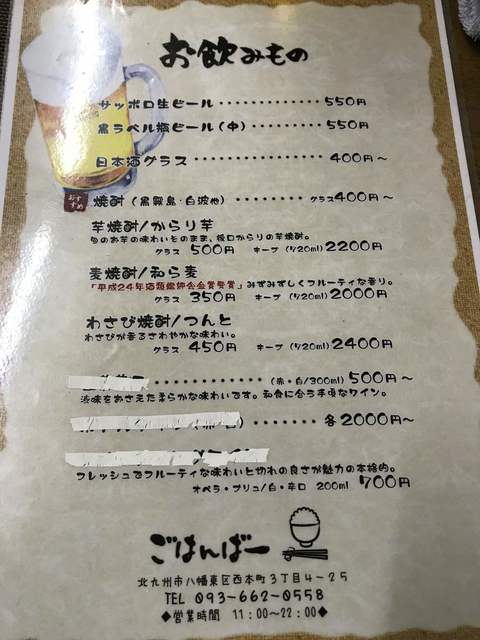 お飲みもの
サッポロ生ビール・・・・・・・・・・・・550円
黒ラベル瓶ビール(中)・・・・・・・・・550円
日本酒グラス・・・・・・・・・・・・・・・400円～
おすすめ 焼酎(黒霧島・白波他)・・・・・・・・グラス400円～
芋焼酎/からり芋
旬のお芋の味わいそのまま、後口からりの芋焼酎。
グラス 500円 キープ (720ml) 2200円
麦焼酎/和ら麦
「平成24年酒類鑑評会金賞受賞」みずみずしくフルーティな香り。
グラス 350円 キープ (720ml) 2000円
わさび焼酎/つんと
わさびが香るさわやかな味わい。
グラス 450円 キープ (720ml) 2400円
・・・・・・・・・・・・(赤・白/300ml) 500円～
渋味をおさえた柔らかな味わいです。和食に合う手頃なワイン。
・・・・・・・各2000円～
フレッシュでフルーティな味わいと切れの良さが魅力の本格的。
オペラ・ブリュ/白・辛口 200ml 700円
ごはんばー
北九州市八幡東区西本町3丁目4－25
TEL 093-662-0558
◆営業時間 11:00～22:00◆